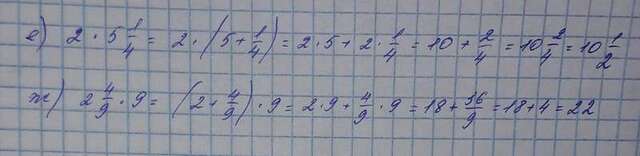 е) 2 · 5 1/4 = 2 · (5 + 1/4) = 2 · 5 + 2 · 1/4 = 10 + 2/4 = 10 2/4 = 10 1/2
ж) 2 4/9 · 9 = (2 + 4/9) · 9 = 2 · 9 + 4/9 · 9 = 18 + 36/9 = 18 + 4 = 22